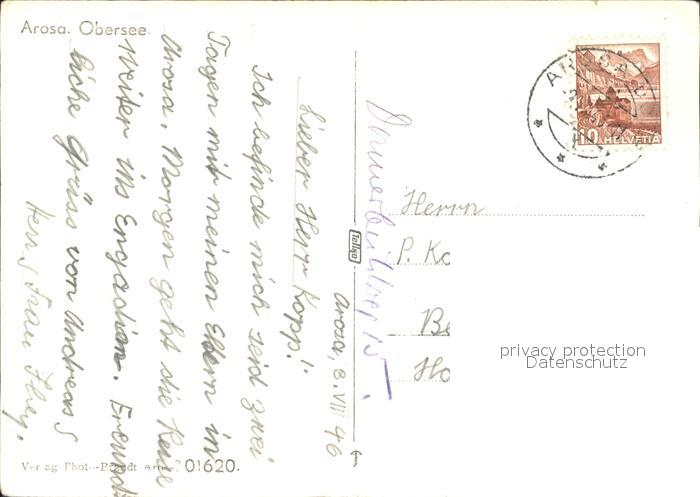 Arosa. Obersee
Arosa, 8. VIII 46
Lieber Herr Kopp!
Ich befinde mich seid zwei
Tagen mit meinen Eltern in
Arosa. Morgen geht die Reise
weiter ins Engadien.
liche Grüss von Andreas
Herr Frau
Verlag Photo-Brandt Arosa 01620.
Tellko
10 HELVETIA
Herrn
P. Ko
Be
Ho
privacy protection
Datenschutz